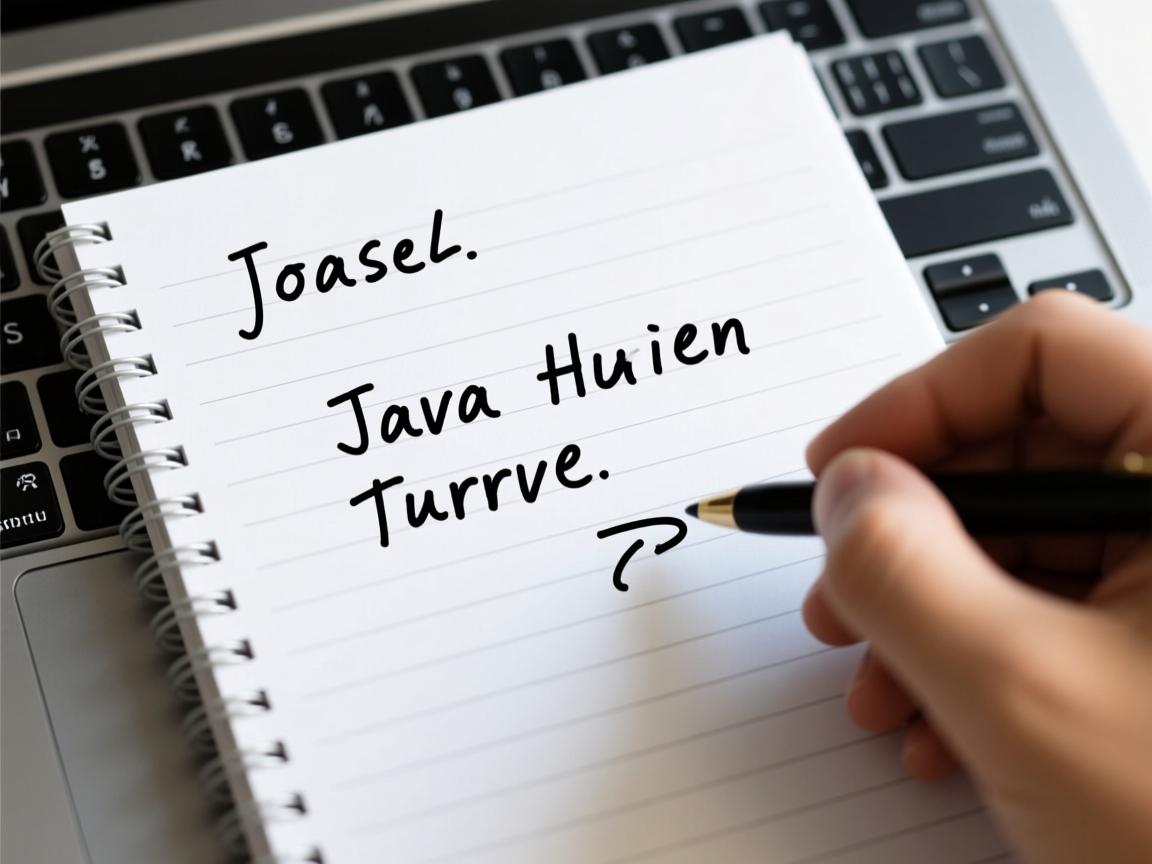 Joasel.
Java Huien
Turrve.